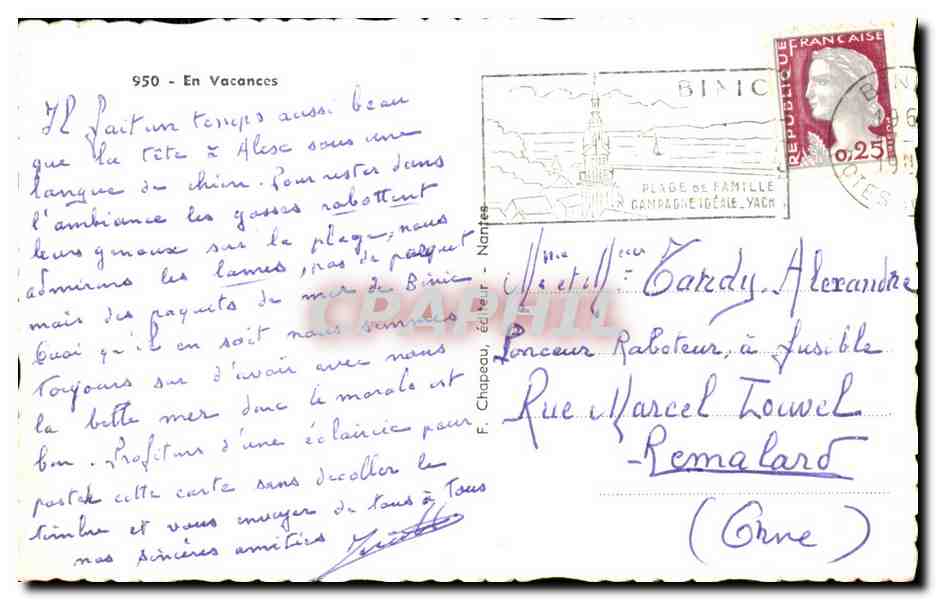 950 - En Vacances
Il fait un temps aussi beau
que la tête à Alex sous une
langue de chien. Pour rester dans
l'ambiance les gosses rabottent
leurs genoux sur la plage, nous
admirons les lames, pas de parquet
mais des paquets de mer de Binic
Quoi qu'il en soit nous sommes
toujours sur d'avoir avec nous
la belle mer donc le morale est
bon. Profitons d'une éclaircie pour
poster cette carte sans décoller le
timbre et vous envoyer de tous à tous
nos sincères amitiés
F. Chapeau, éditeur - Nantes
BINIC
PLAGE DE FAMILLE
CAMPAGNE IDÉALE_YACH
REPUBLIQUE FRANÇAISE
0,25
CRAPHIL
Tardy. Alexandre
Ponceur Raboteur, à fusible
Rue Marcel Louvel
Remalard
(Orne)